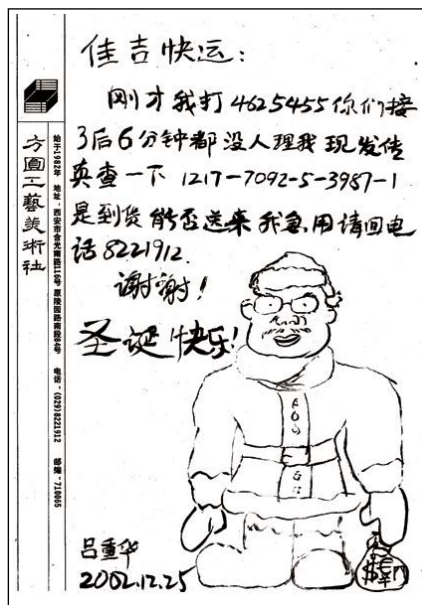 佳吉快运：
刚才我打4625455你们接
3后6分钟都没人理我现发传
真查一下 1217-7092-5-3987-1
是到货能否送来我急用请回电
话8221912.
谢谢！
圣诞快乐！
吕重华
2002.12.25
方圆工艺美术社
始于1982年 地址：西安市含光南路116号 原陵园路南段84号 电话：(029)8221912 邮编：710065